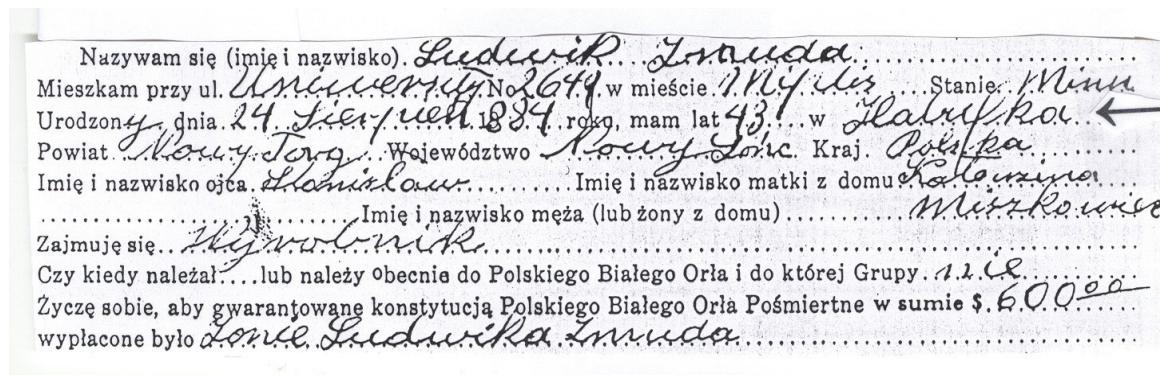 Nazywam się (imię i nazwisko). Ludwik Zmuda
Mieszkam przy ul. University No 2649 w mieście Mpls Stanie. Minn
Urodzony dnia 24 Sierpień 1884 roku, mam lat 43 w
Powiat Nowy Torg Województwo Nowy Sącz Kraj Polska
Imię i nazwisko ojca Stanislaw Imię i nazwisko matki z domu Katarzina
Imię i nazwisko męża (lub żony z domu) Miszkowiec
Zajmuję się Wyrobnik
Czy kiedy należał lub należy obecnie do Polskiego Białego Orła i do której Grupy nie
Życzę sobie, aby gwarantowane konstytucją Polskiego Białego Orła Pośmiertne w sumie $ 600 00
wypłacone było Zonie Ludwika Zmuda